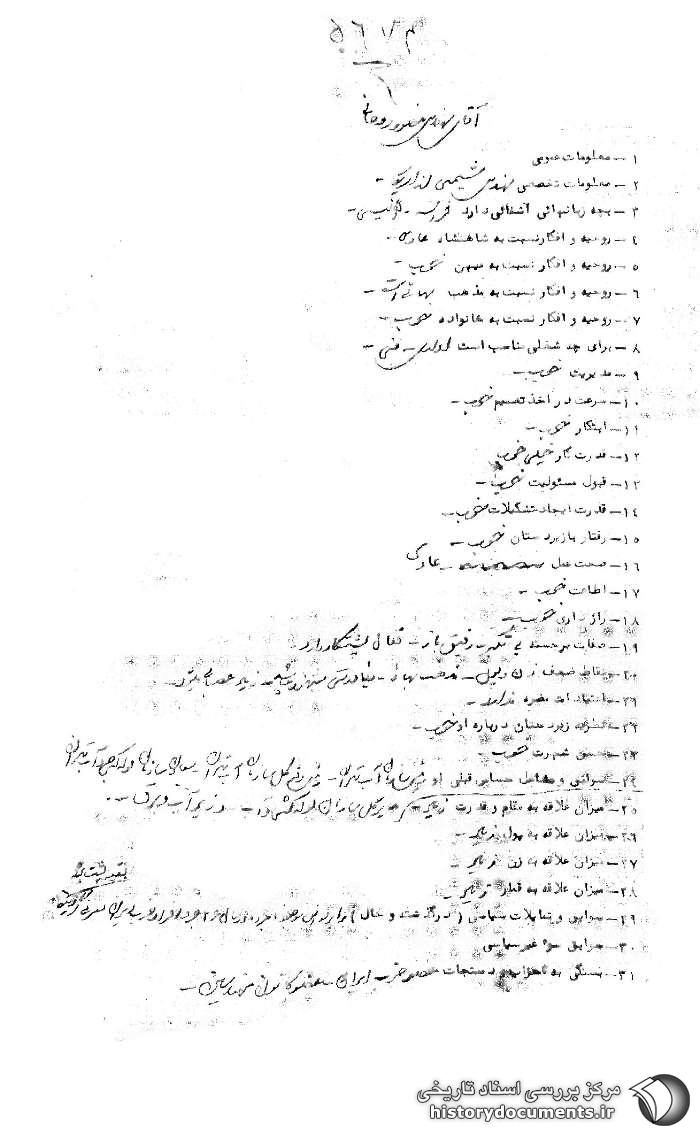 ۵۶۷۴
آقای مهندس منصور روحانی
۱ – معلومات عمومی
۲ – معلومات تخصصی مهندس شیمی از امریکا –
۳ – بچه زبانهائی آشنائی دارد – انگلیسی –
۴ – روحیه و افکار نسبت به شاهنشاه عادی –
۵ – روحیه و افکار نسبت به میهن خوب –
۶ – روحیه و افکار نسبت به مذهب بهائی است –
۷ – روحیه و افکار نسبت به خانواده خوب –
۸ – برای چه شغلی مناسب است اداری – فنی –
۹ – مدیریت خوب –
۱۰ – سرعت در اخذ تصمیم خوب –
۱۱ – ابتکار خوب –
۱۲ – قدرت کار خیلی خوب
۱۳ – قبول مسئولیت خوب –
۱۴ – قدرت ایجاد تشکیلات خوب –
۱۵ – رفتار با زیردستان خوب –
۱۶ – صحت عمل – عادی
۱۷ – اطاعت خوب –
۱۸ – رازداری خوب –
۱۹ – صفات برجسته بی تکبر – رفیق باز – فعال پشتکار دارد
۲۰ – نقاط ضعف زن و پول – مذهب بهائی –
۲۱ – اعتیادات مضره ندارد –
۲۲ – نظریه زیردستان درباره او خوب –
۲۳ – حسن شهرت خوب –
۲۴ – سوابق و مشاغل حساس قبلی او
۲۵ – میزان علاقه به مقام و قدرت زیاد – وزیر آب و برق –
۲۶ – میزان علاقه به پول زیاد –
۲۷ – میزان علاقه به زن زیاد –
۲۸ – میزان علاقه به قمار زیاد –
۲۹ – سوابق و تمایلات سیاسی (در گذشته و حال)
۳۰ – سوابق سوء غیرسیاسی
۳۱ – بستگی به احزاب و دستجات عضو حزب ایران – عضو کانون مهندسین –
مرکز بررسی اسناد تاریخی
historydocuments.ir